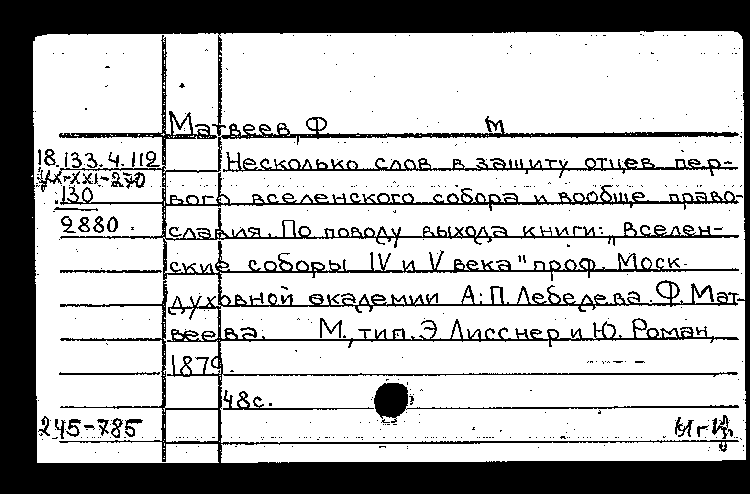 Матвеев, Ф М
18.133.4.112 Несколько слов в защиту отцев пер-
вого вселенского собора и вообще право-
130
2880 славия. По поводу выхода книги: „Вселен-
ские соборы IV и V века" проф. Моск.
духовной академии А. П. Лебедева. Ф. Мат-
веева. М., тип. Э. Лисснер и Ю. Роман,
1879.
48с.
245-785